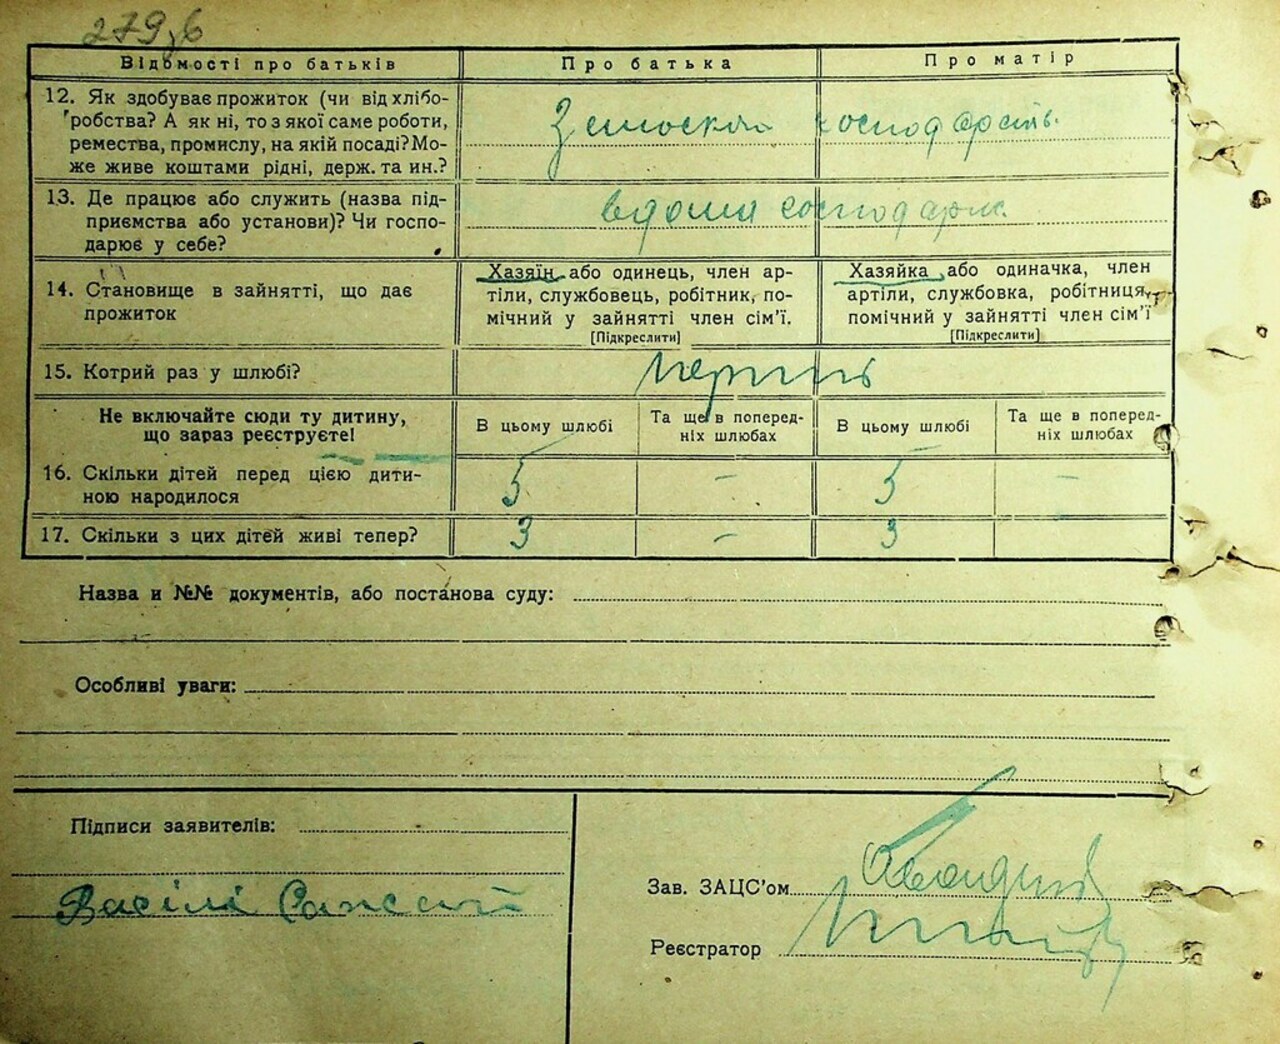 279 зв
Відомості про батьків
Про батька
Про матір
12. Як здобуває прожиток (чи від хлібо-
робства? А як ні, то з якої саме роботи,
ремества, промислу, на якій посаді? Мо-
же живе коштами рідні, держ. та ин.?
13. Де працює або служить (назва під-
приємства або установи)? Чи госпо-
дарює у себе?
14. Становище в зайнятті, що дає
прожиток
Хазяїн або одинець, член ар-
тіли, службовець, робітник, по-
мічний у зайнятті член сім’ї.
[Підкреслити]
Хазяйка, або одиначка, член
артіли, службовка, робітниця,
помічний у зайнятті член сім’ї
[Підкреслити]
15. Котрий раз у шлюбі?
Не включайте сюди ту дитину,
що зараз реєструєте!
В цьому шлюбі
Та ще в поперед-
ніх шлюбах
В цьому шлюбі
Та ще в поперед-
ніх шлюбах
16. Скільки дітей перед цією дити-
ною народилося
5 – 5 –
17. Скільки з цих дітей живі тепер?
3 – 3
Назва и №№ документів, або постанова суду:
Особливі уваги:
Підписи заявителів:
Василі
Зав. ЗАЦС’ом
Реєстратор